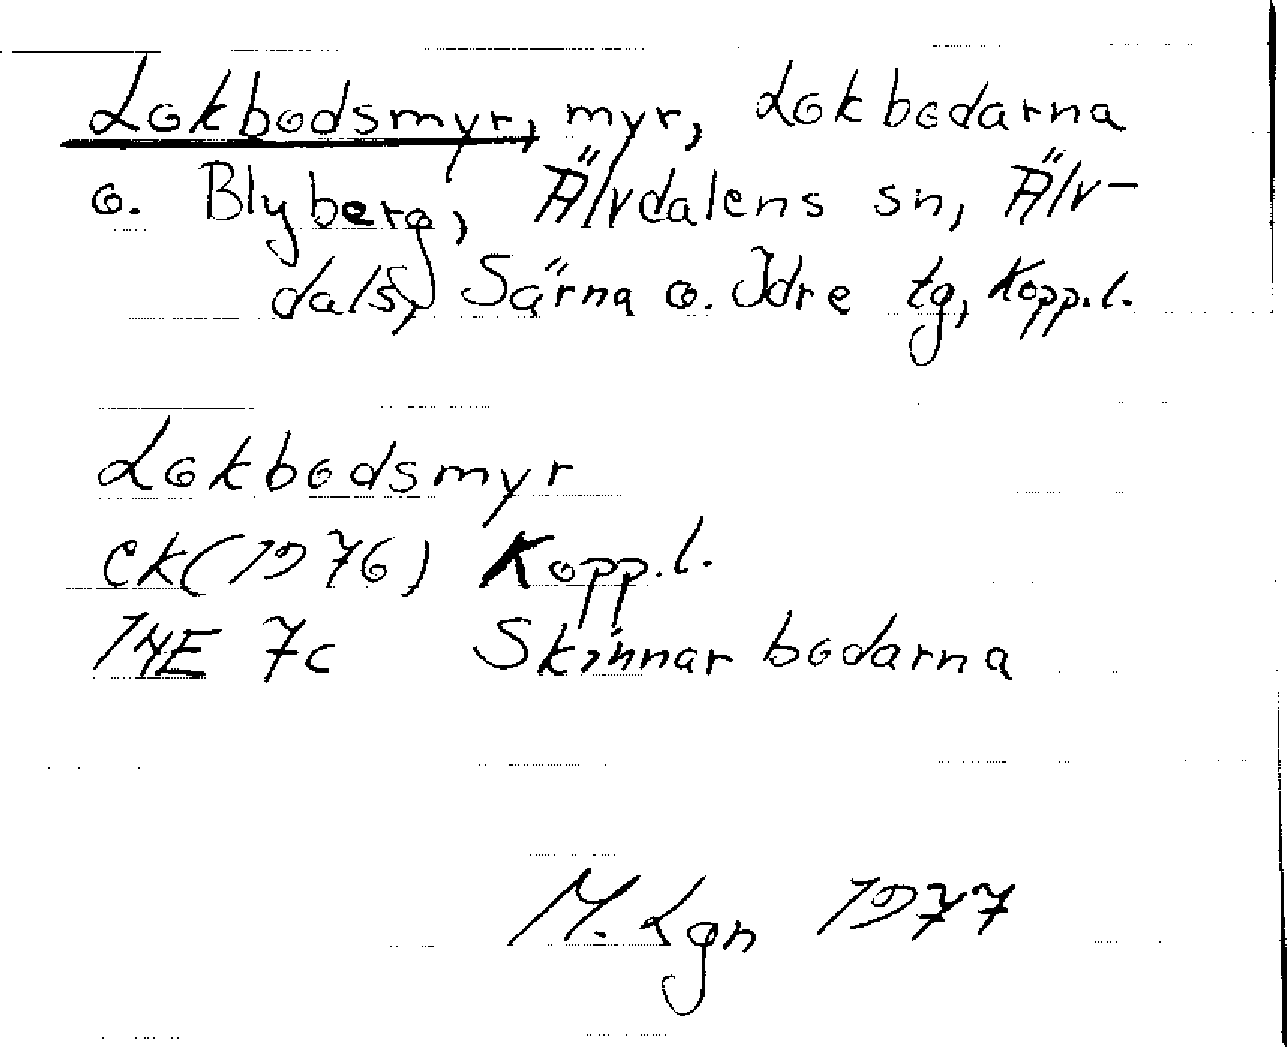 Lokbodsmyr, myr, Lokbodarna
o. Blyberg, Älvdalens sn, Älv-
dals, Särna o. Idre tg, Kopp.l.
Lokbodsmyr
EK(1976) Kopp.l.
14E 7c Skinnarbodarna
M. Lgn 1977